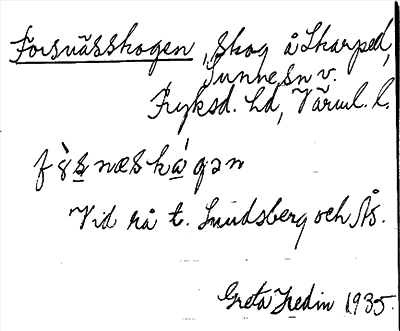 Forsnässkogen, Skog å Skarped,
Sunne sn v.
Fryksd. hd, Värml. l.
fɤ̀s næskágən
Vid rå t. Smidsberg och Ås.
Greta Hedin 1935.